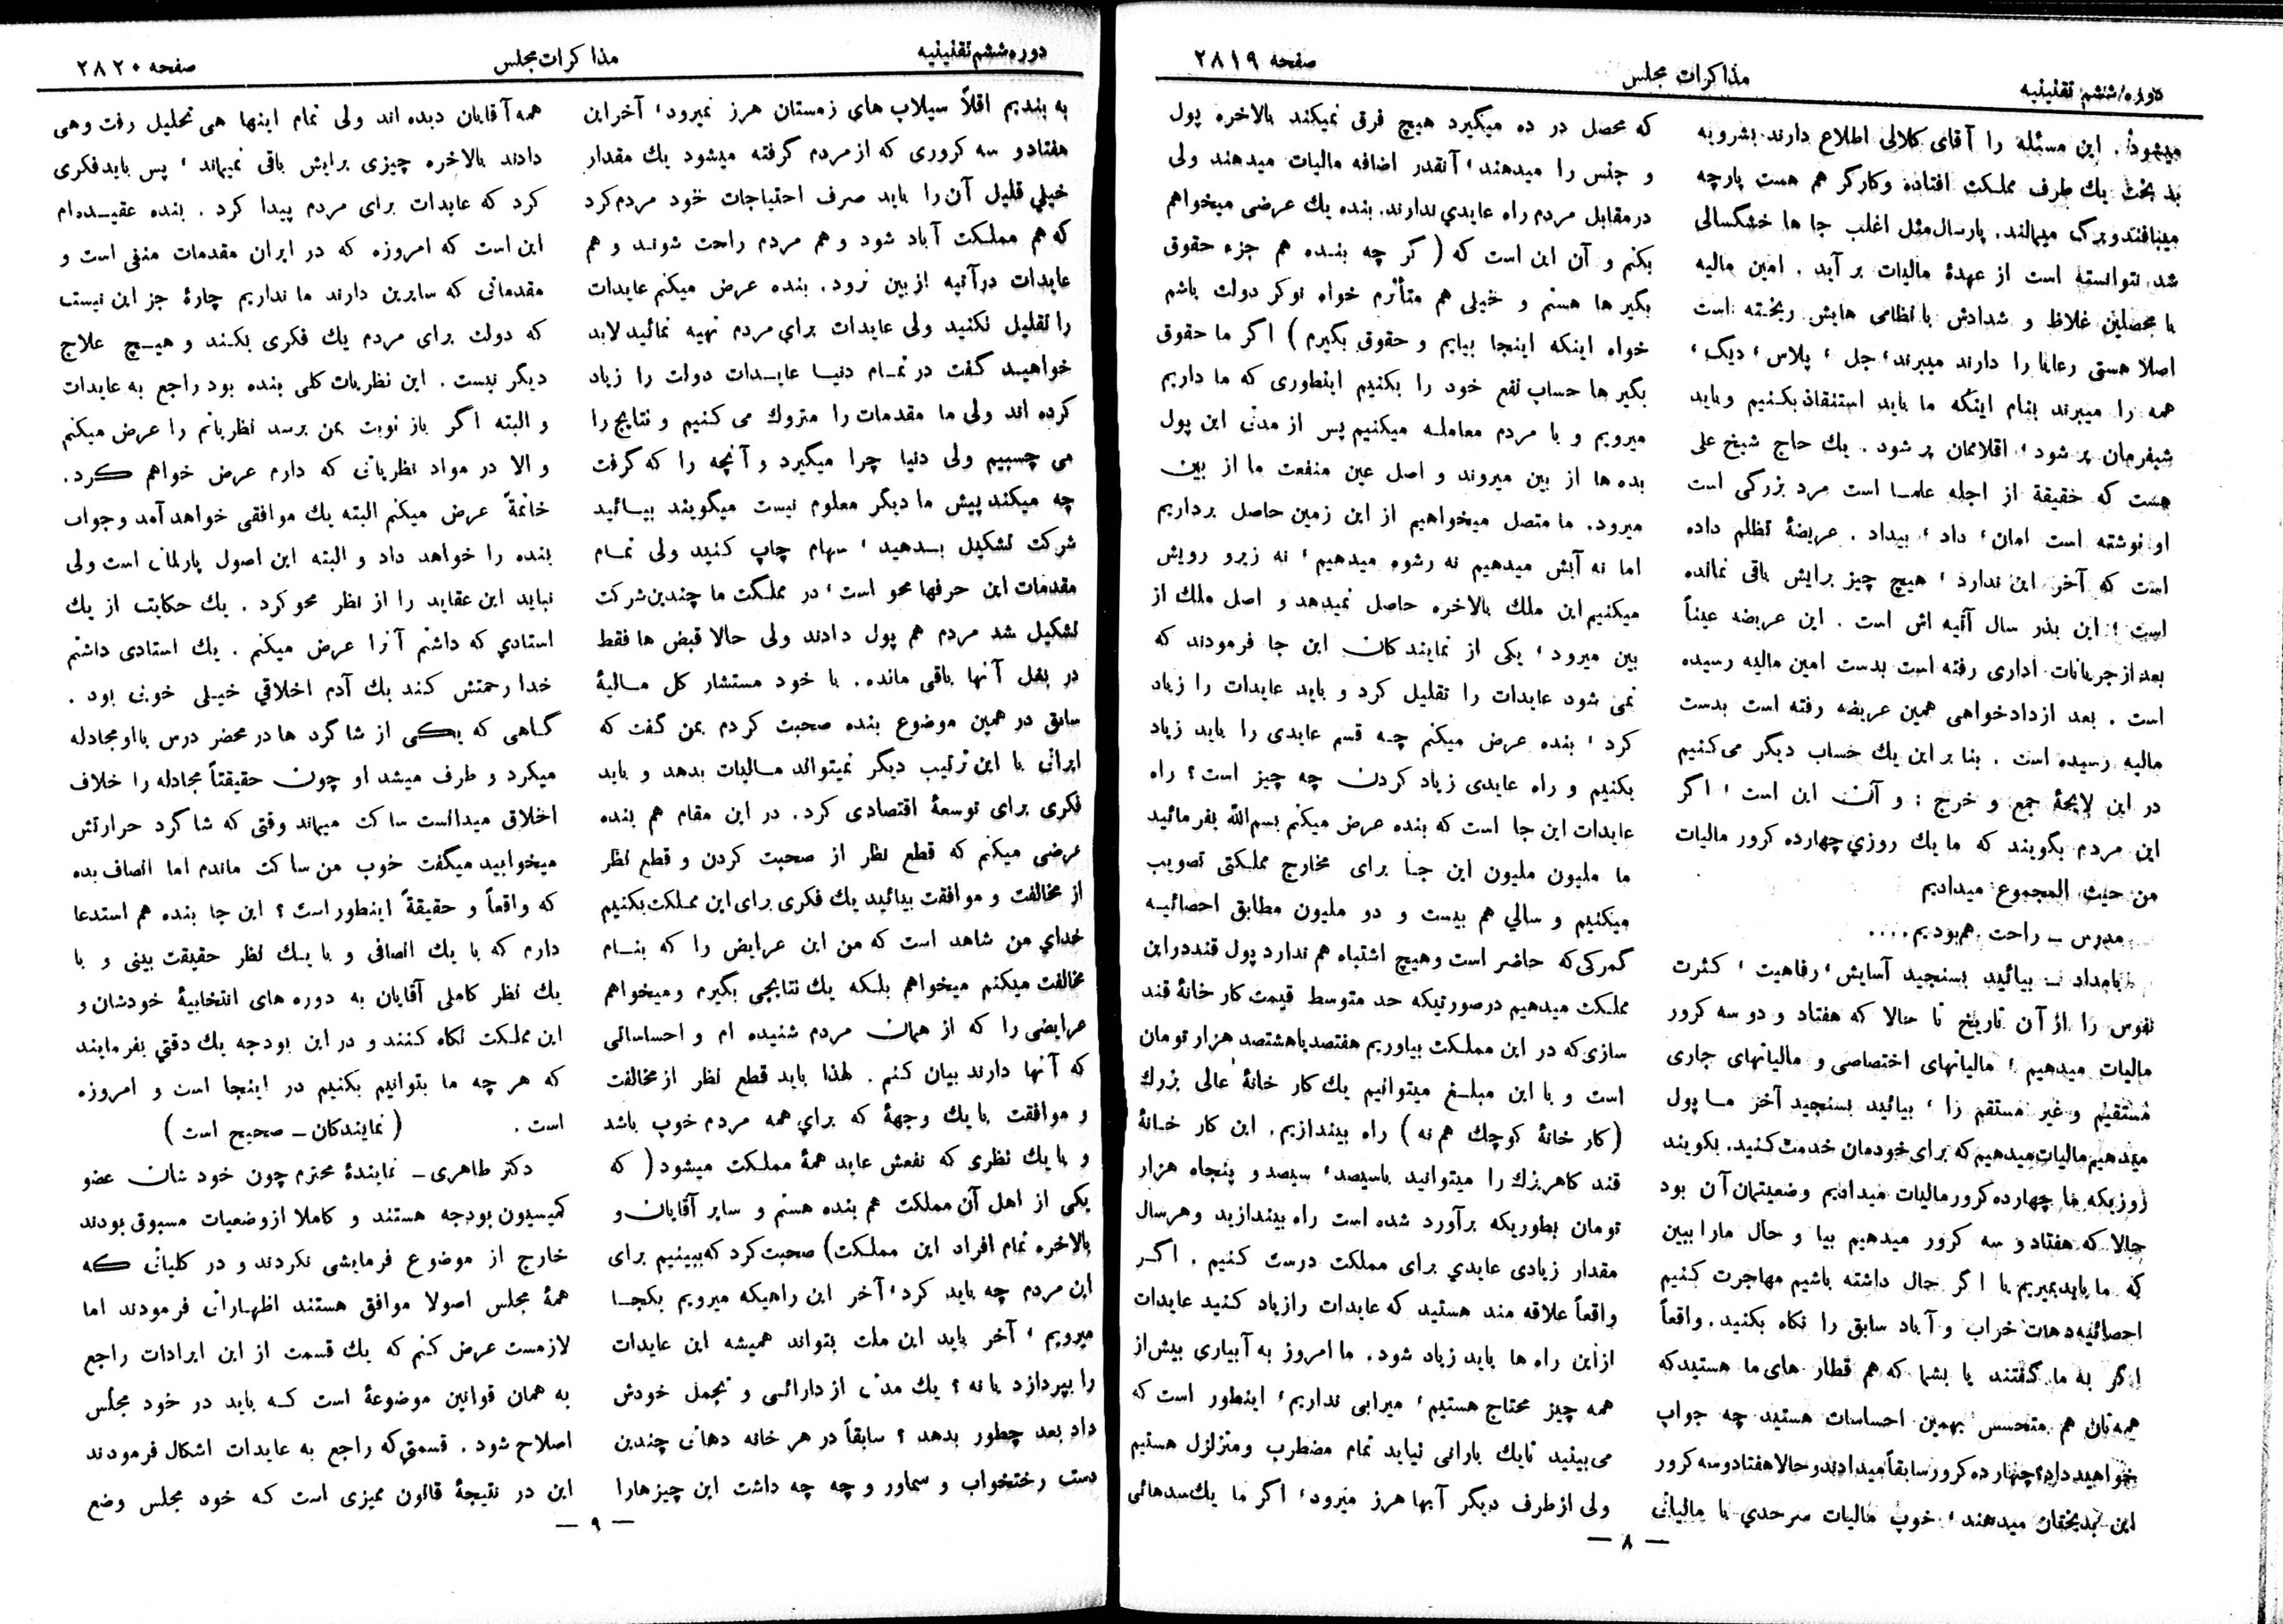 دوره ششم تقنینیه
مذاکرات مجلس
صفحه ۲۸۱۹
میشود. این مسئله را آقای کلالی اطلاع دارند بشرویه
بد بخت یك طرف مملکت افتاده و کارگر هم هست پارچه
میبافند و برك میمالند. پارسال مثل اغلب جا ها خشگسالی
شد نتوانسته است از عهدهٔ مالیات بر آید. امین مالیه
با محصلین غلاظ و شدادش با نظامی هایش ریخته است
اصلا هستی رعایا را دارند میبرند، جل، پلاس، دیگ،
همه را میبرند بنام اینکه ما باید استنقاذ بکنیم و باید
شیفرمان پر شود، اقلاممان پر شود. یك حاج شیخ علی
هست که حقیقة از اجله علما است مرد بزرگی است
او نوشته است امان، داد، بیداد. عریضهٔ تظلم داده
است که آخر این ندارد، هیچ چیز برایش باقی نمانده
است، این بذر سال آتیه اش است. این عریضه عیناً
بعد از جریانات اداری رفته است بدست امین مالیه رسیده
است. بعد از دادخواهی همین عریضه رفته است بدست
مالیه رسیده است. بنا بر این یك حساب دیگر می کنیم
در این لایحهٔ جمع و خرج: و آن این است، اگر
این مردم بگویند که ما یك روزي چهارده کرور مالیات
من حیث المجموع میدادیم
مدرس ـ راحت هم بودیم....
بامداد ـ بیائید بسنجید آسایش، رفاهیت، کثرت
نفوس را از آن تاریخ تا حالا که هفتاد و دو سه کرور
مالیات میدهیم، مالیاتهای اختصاصی و مالیاتهای جاری
مستقیم و غیر مستقیم را، بیائید بسنجید آخر ما پول
میدهیم مالیات میدهیم که برای خودمان خدمت کنید. بگویند
روزیکه ما چهارده کرور مالیات میدادیم وضعیتمان آن بود
حالا که هفتاد و سه کرور میدهیم بیا و حال مارا ببین
که ما باید بمیریم یا اگر حال داشته باشیم مهاجرت کنیم
احصائیه دهات خراب و آباد سابق را نگاه بکنید. واقعاً
اگر به ما گفتند یا بشما که هم قطار های ما هستید که
همه تان هم متحسس بهمین احساسات هستید چه جواب
خواهید داد؟ چهارده کرور سابقاً میدادند و حالا هفتاد و سه کرور
این بدبختان میدهند، خوب مالیات سرحدي با مالیاتی
که محصل در ده میگیرد هیچ فرق نمیکند بالاخره پول
و جنس را میدهند، آنقدر اضافه مالیات میدهند ولی
در مقابل مردم راه عایدي ندارند. بنده یك عرضی میخواهم
بکنم و آن این است که ( گر چه بنده هم جزء حقوق
بگیر ها هستم و خیلی هم متأثرم خواه نوکر دولت باشم
خواه اینکه اینجا بیایم و حقوق بگیرم ) اگر ما حقوق
بگیر ها حساب نفع خود را بکنیم اینطوری که ما داریم
میرویم و با مردم معامله میکنیم پس از مدتی این پول
بده ها از بین میروند و اصل عین منفعت ما از بین
میرود. ما متصل میخواهیم از این زمین حاصل برداریم
اما نه آبش میدهیم نه رشوه میدهیم، نه زیرو رویش
میکنیم این ملك بالاخره حاصل نمیدهد و اصل ملك از
بین میرود، یکی از نمایندگان این جا فرمودند که
نمی شود عایدات را تقلیل کرد و باید عایدات را زیاد
کرد، بنده عرض میکنم چه قسم عایدی را باید زیاد
بکنیم و راه عایدی زیاد کردن چه چیز است؟ راه
عایدات این جا است که بنده عرض میکنم بسم الله بفرمائید
ما ملیون ملیون این جا برای مخارج مملکتی تصویب
میکنیم و سالي هم بیست و دو ملیون مطابق احصائیه
گمرکی که حاضر است و هیچ اشتباه هم ندارد پول قند در این
مملکت میدهیم در صورتیکه حد متوسط قیمت کار خانهٔ قند
سازی که در این مملکت بیاوریم هفتصد یا هشتصد هزار تومان
است و با این مبلغ میتوانیم یك کار خانهٔ عالی بزرك
(کار خانهٔ کوچك هم نه ) راه بیندازیم. این کار خانهٔ
قند کاهریزك را میتوانید با سیصد، سیصد و پنجاه هزار
تومان بطوریکه برآورد شده است راه بیندازید و هر سال
مقدار زیادی عایدي برای مملکت درست کنیم. اگر
واقعاً علاقه مند هستید که عایدات را زیاد کنید عایدات
از این راه ها باید زیاد شود. ما امروز به آبیاری بیش از
همه چیز محتاج هستیم، میرابی نداریم، اینطور است که
می بینید تا یك بارانی نیاید تمام مضطرب و متزلزل هستیم
ولی از طرف دیگر آبها هرز میرود، اگر ما یك سدهائی
— ۸ —
دوره ششم تقنینیه
مذاکرات مجلس
صفحه ۲۸۲۰
به بندیم اقلاً سیلاب های زمستان هرز نمیرود، آخر این
هفتاد و سه کروری که از مردم گرفته میشود یك مقدار
خیلي قلیل آن را باید صرف احتیاجات خود مردم کرد
که هم مملکت آباد شود و هم مردم راحت شوند و هم
عایدات در آتیه از بین نرود. بنده عرض میکنم عایدات
را تقلیل نکنید ولی عایدات براي مردم تهیه نمائید لابد
خواهید گفت در تمام دنیا عایدات دولت را زیاد
کرده اند ولی ما مقدمات را متروك می کنیم و نتایج را
می چسبیم ولی دنیا چرا میگیرد و آنچه را که گرفت
چه میکند پیش ما دیگر معلوم نیست میگویند بیائید
شرکت تشکیل بدهید، سهام چاپ کنید ولی تمام
مقدمات این حرفها محو است، در مملکت ما چندین شرکت
تشکیل شد مردم هم پول دادند ولی حالا قبض ها فقط
در بغل آنها باقی مانده. با خود مستشار کل مالیهٔ
سابق در همین موضوع بنده صحبت کردم بمن گفت که
ایرانی با این ترتیب دیگر نمیتواند مالیات بدهد و باید
فکری برای توسعهٔ اقتصادی کرد. در این مقام هم بنده
عرضی میکنم که قطع نظر از صحبت کردن و قطع نظر
از مخالفت و موافقت بیائید یك فکری برای این مملکت بکنیم
خداي من شاهد است که من این عرایض را که بنام
مخالفت میکنم میخواهم بلکه یك نتایجی بگیرم و میخواهم
عرایضی را که از همان مردم شنیده ام و احساساتی
که آنها دارند بیان کنم. لهذا باید قطع نظر از مخالفت
و موافقت با یك وجههٔ که براي همه مردم خوب باشد
و با یك نظری که نفعش عاید همهٔ مملکت میشود ( که
یکی از اهل آن مملکت هم بنده هستم و سایر آقایان و
بالاخره تمام افراد این مملکت) صحبت کرد که ببینیم برای
این مردم چه باید کرد، آخر این راهیکه میرویم بکجا
میرویم، آخر باید این ملت بتواند همیشه این عایدات
را بپردازد یا نه؟ یك مدتی از دارائی و تجمل خودش
داد بعد چطور بدهد؟ سابقاً در هر خانه دهاتی چندین
دست رختخواب و سماور و چه چه داشت این چیزها را
همه آقایان دیده اند ولی تمام اینها هی تحلیل رفت و هی
دادند بالاخره چیزی برایش باقی نمیماند، پس باید فکری
کرد که عایدات برای مردم پیدا کرد. بنده عقیده ام
این است که امروزه که در ایران مقدمات منفی است و
مقدماتی که سایرین دارند ما نداریم چارهٔ جز این نیست
که دولت برای مردم یك فکری بکند و هیچ علاج
دیگر نیست. این نظریات کلی بنده بود راجع به عایدات
و البته اگر باز نوبت بمن برسد نظریاتم را عرض میکنم
و الا در مواد نظریاتی که دارم عرض خواهم کرد.
خاتمةً عرض میکنم البته یك موافقی خواهد آمد و جواب
بنده را خواهد داد و البته این اصول پارلمانی است ولی
نباید این عقاید را از نظر محو کرد. یك حکایت از یك
استادي که داشتم آنرا عرض میکنم. یك استادی داشتم
خدا رحمتش کند یك آدم اخلاقي خیلی خوبی بود.
گاهی که یکی از شاگرد ها در محضر درس با او مجادله
میکرد و طرف میشد او چون حقیقتاً مجادله را خلاف
اخلاق میدانست ساکت میماند وقتی که شاگرد حرارتش
میخوابید میگفت خوب من ساکت ماندم اما انصاف بده
که واقعاً و حقیقةً اینطور است؟ این جا بنده هم استدعا
دارم که با یك انصافی و با یك نظر حقیقت بینی و با
یك نظر کاملی آقایان به دوره های انتخابیهٔ خودشان و
این مملکت نگاه کنند و در این بودجه یك دقتي بفرمایند
که هر چه ما بتوانیم بکنیم در اینجا است و امروزه
است. ( نمایندگان ـ صحیح است )
دکتر طاهری ـ نمایندهٔ محترم چون خود شان عضو
کمیسیون بودجه هستند و کاملا از وضعیات مسبوق بودند
خارج از موضوع فرمایشی نکردند و در کلیاتی که
همهٔ مجلس اصولا موافق هستند اظهاراتی فرمودند اما
لازمست عرض کنم که یك قسمت از این ایرادات راجع
به همان قوانین موضوعهٔ است که باید در خود مجلس
اصلاح شود. قسمتي که راجع به عایدات اشکال فرمودند
این در نتیجهٔ قانون ممیزی است که خود مجلس وضع
— ۹ —